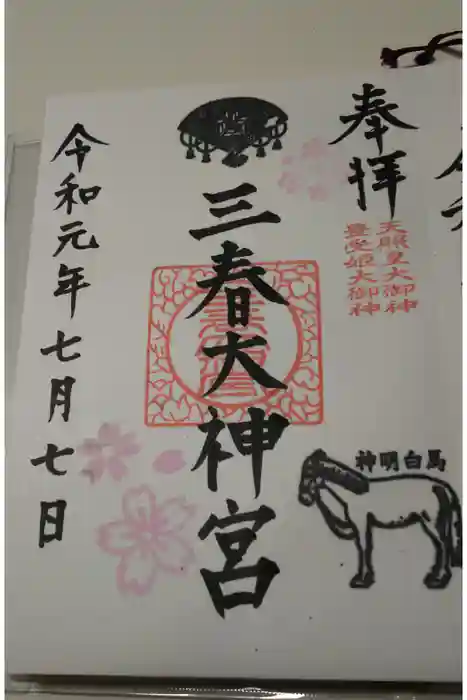 奉拝
天照皇大御神
豊受姫大御神
三春大神宮
神明白馬
令和元年七月七日